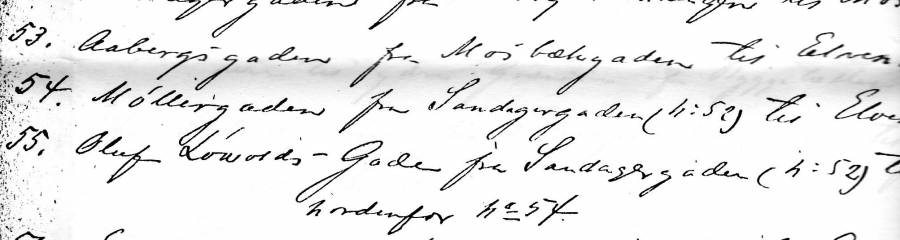 53. Aabergsgaden fra Mosbækgaden til Elven
54. Møllergaden fra Sandagergaden (N: 52) til Elve
55. Oluf Løwolds - Gade fra Sandagergaden (N: 52) t
nordenfor No 54.